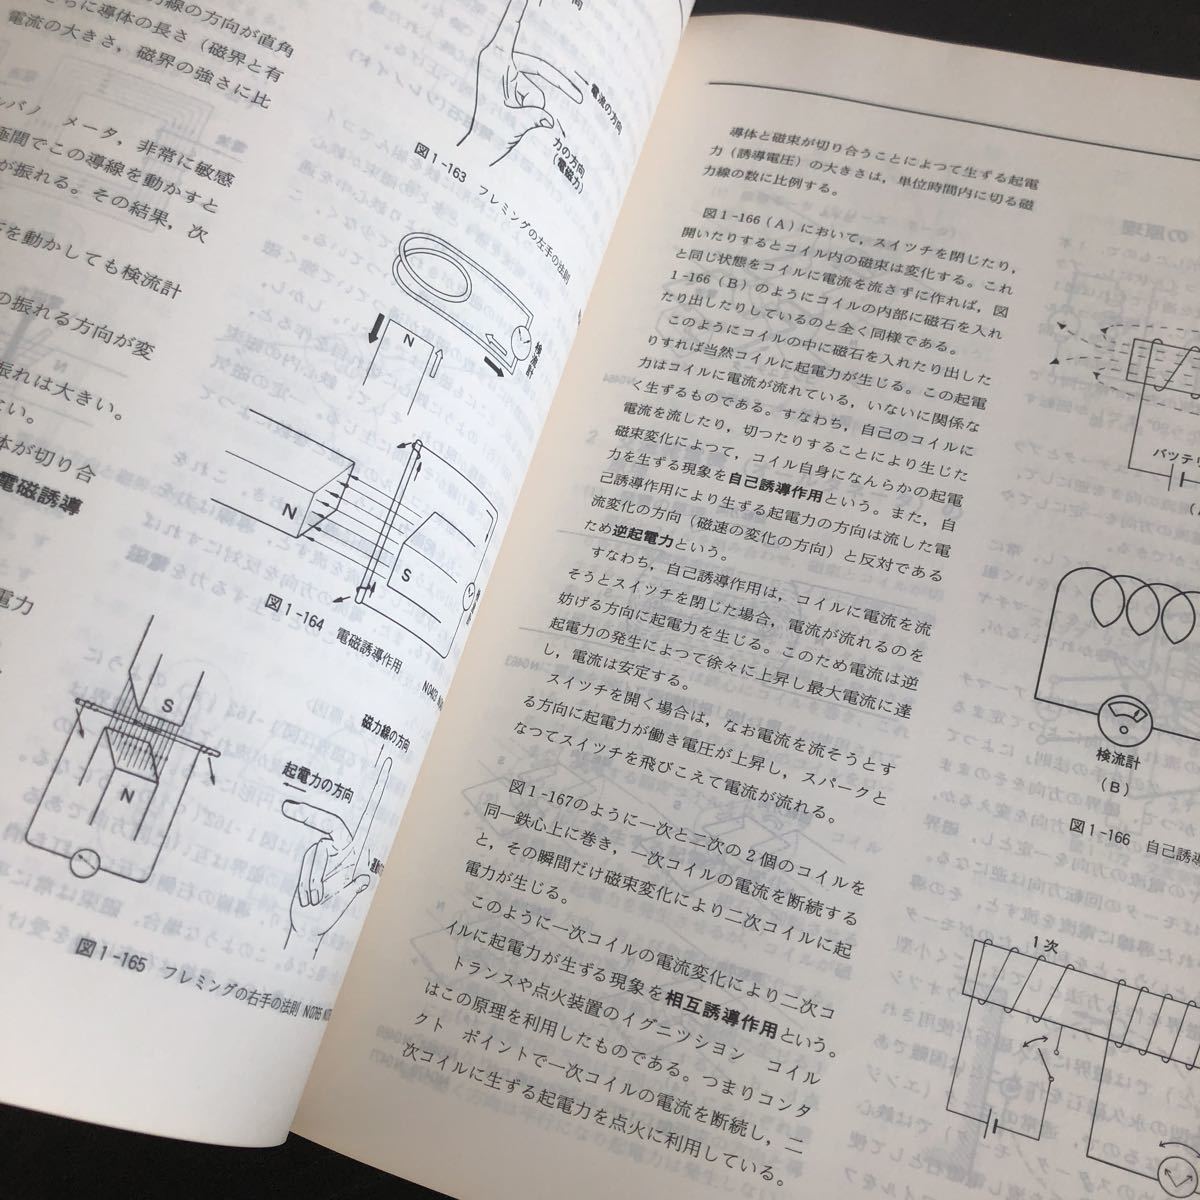 線の方向が直角
さらに導体の長さ（磁界と有
電流の大きさ，磁界の強さに比
メータ，非常に敏感
極間でこの導線を動かすと
が振れる。その結果，次
を動かしても検流計
の振れる方向が変
振れは大きい。
体が切り合
電磁誘導
電力
電流の方向
力の方向
（電磁力）
図1-163 フレミングの左手の法則
N
検流計
N
S
図1-164 電磁誘導作用
S
N
磁力線の方向
起電力の方向
図1-165 フレミングの右手の法則
導体と磁束が切り合うことによつて生ずる起電
力（誘導電圧）の大きさは，単位時間内に切る磁
力線の数に比例する。
図1-166（A）において，スイツチを閉じたり，
開いたりするとコイル内の磁束は変化する。これ
と同じ状態をコイルに電流を流さずに作れば，図
1-166（B）のようにコイルの内部に磁石を入れ
たり出したりしているのと全く同様である。
このようにコイルの中に磁石を入れたり出した
りすれば当然コイルに起電力が生じる。この起電
力はコイルに電流が流れている，いないに関係な
く生ずるものである。すなわち，自己のコイルに
電流を流したり，切つたりすることにより生じた
磁束変化によつて，コイル自身になんらかの起電
力を生ずる現象を自己誘導作用という。また，自
己誘導作用により生ずる起電力の方向は流した電
流変化の方向（磁速の変化の方向）と反対である
ため逆起電力という。
すなわち，自己誘導作用は，コイルに電流を流
そうとスイツチを閉じた場合，電流が流れるのを
妨げる方向に起電力を生じる。このため電流は逆
起電力の発生によつて徐々に上昇し最大電流に達
し，電流は安定する。
スイツチを開く場合は，なお電流を流そうとす
る方向に起電力が働き電圧が上昇し，スパークと
なつてスイツチを飛びこえて電流が流れる。
図1-167のように一次と二次の2個のコイルを
同一鉄心上に巻き，一次コイルの電流を断続する
と，その瞬間だけ磁束変化により二次コイルに起
電力が生じる。
このように一次コイルの電流変化により二次コ
イルに起電力が生ずる現象を相互誘導作用という。
トランスや点火装置のイグニツシヨン コイル
はこの原理を利用したものである。つまりコンタ
クト ポイントで一次コイルの電流を断続し，二
次コイルに生ずる起電力を点火に利用している。
バッテリ
検流計
（B）
図1-166 自己誘導
1次